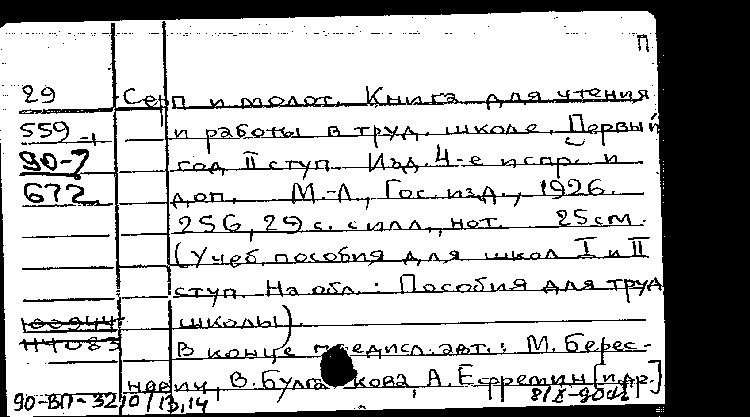 П
29 Серп и молот. Книга для чтения
559-1 и работы в труд. школе. Первый
90-7 год II ступ. Изд. 4-е испр. и
672 доп. М.-Л., Гос. изд., 1926.
256, 29 с. с илл., нот. 25 см.
(Учеб. пособия для школ I и II
ступ. На обл.: Пособия для труд
100944 школы).
114083 В конце предисл. авт.: М. Берес-
невич, В. Булгакова, А. Ефремин [и др.]
90-ВП-3210/13,14 8/X-90